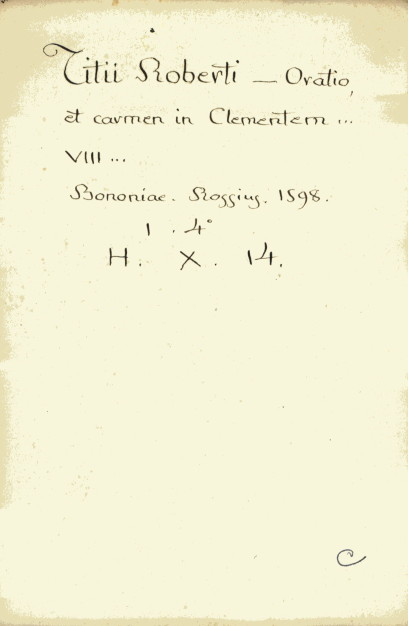 Titii Roberti — Oratio,
et carmen in Clementem ...
VIII ...
Bononiae. Rossius. 1598.
1 . 4°
H. X. 14.
C